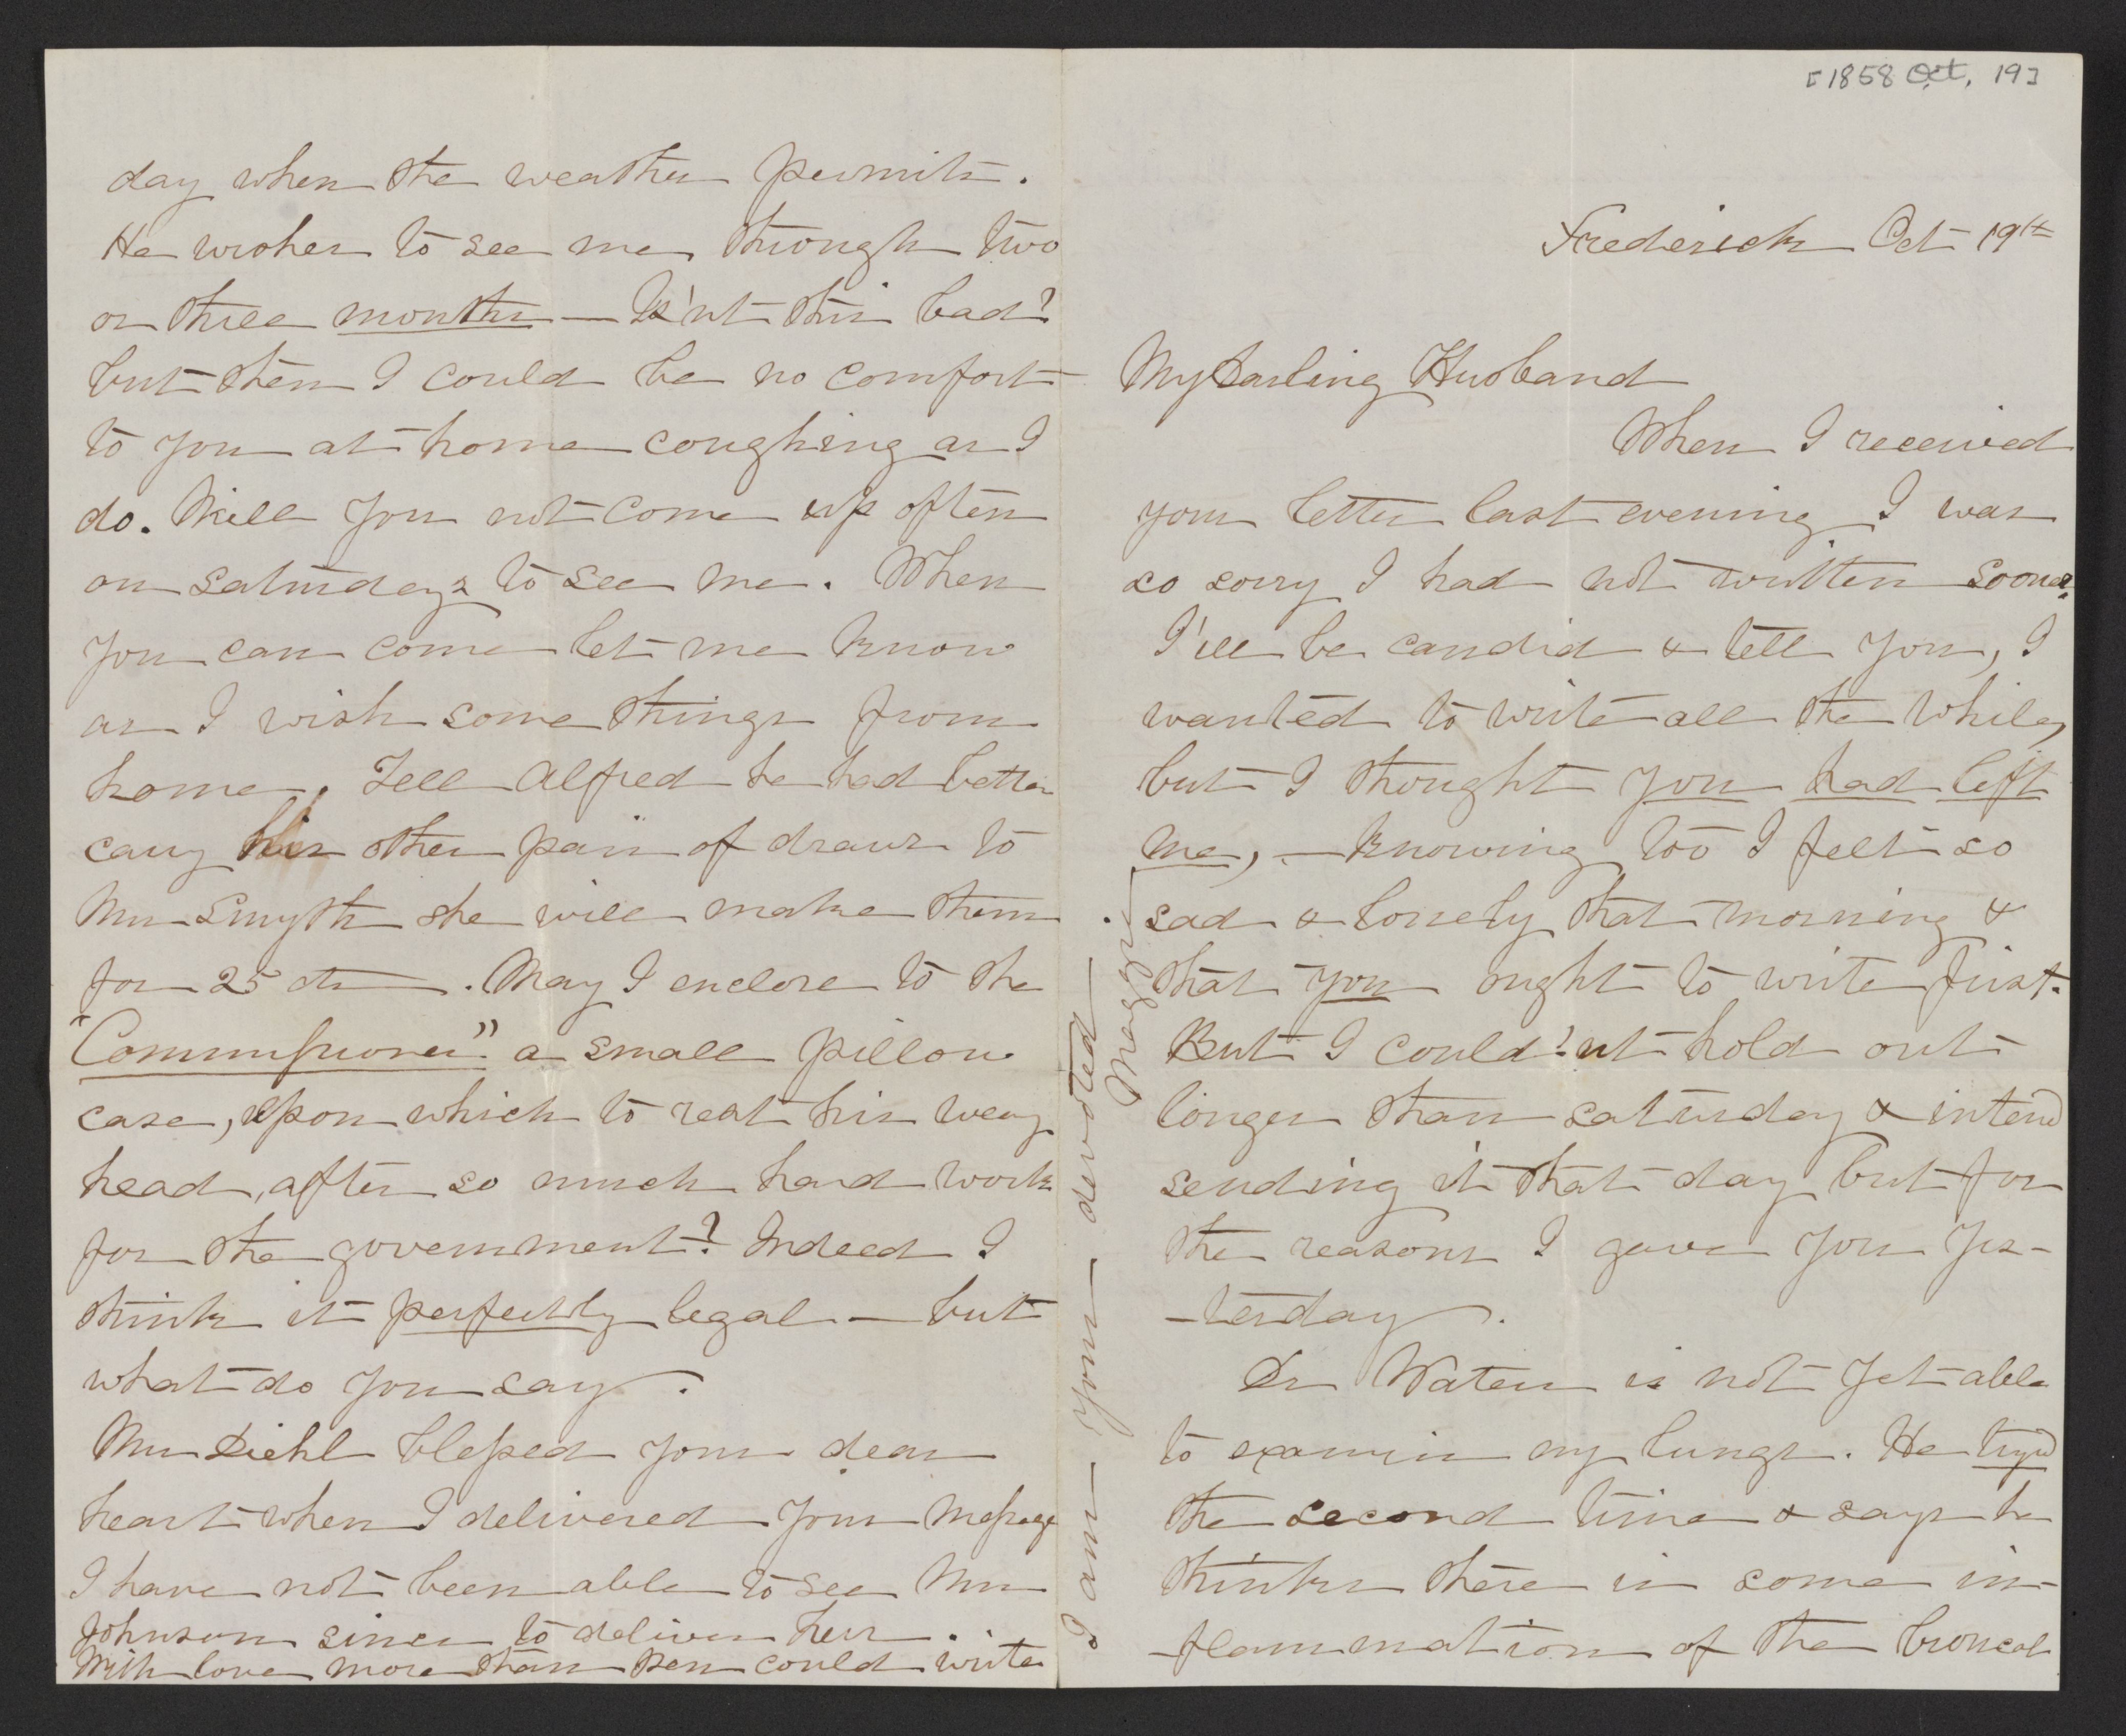 [1858 Oct. 19]
Frederick Oct 19th
My Darling Husband
When I received
your letter last evening I was
so sorry I had not written sooner.
I'll be candid & tell you, I
wanted to write all the while,
but I thought you had left
me, — knowing too I felt so
sad & lonely that morning &
that you ought to write first.
But I could'nt hold out
longer than saturday & intend
sending it that day but for
the reasons I gave you yes-
-terday.
Dr Waters is not yet able
to examin my lungs. He tryd
the second time & says he
thinks there is some in-
-flammation of the broncal
day when the weather permits.
He wishes to see me through two
or three months — Is'nt this bad?
but then I could be no comfort
to you at home coughing as I
do. Will you not come up often
on saturdays to see me. When
you can come let me know
as I wish some things from
home. Tell Alfred he had better
carry his other pair of draws to
Mrs Smyth she will make them
for 25 cts. May I enclose to the
"Commissioner" a small pillow
case, upon which to rest his weary
head, after so much hard work
for the government? Indeed I
think it perfectly legal — but
what do you say.
Mrs Diehl blessed your dear
heart when I delivered your message
I have not been able to see Mrs
Johnson since to deliver hers.
With love more than pen could write
I am your devoted
Maggie.